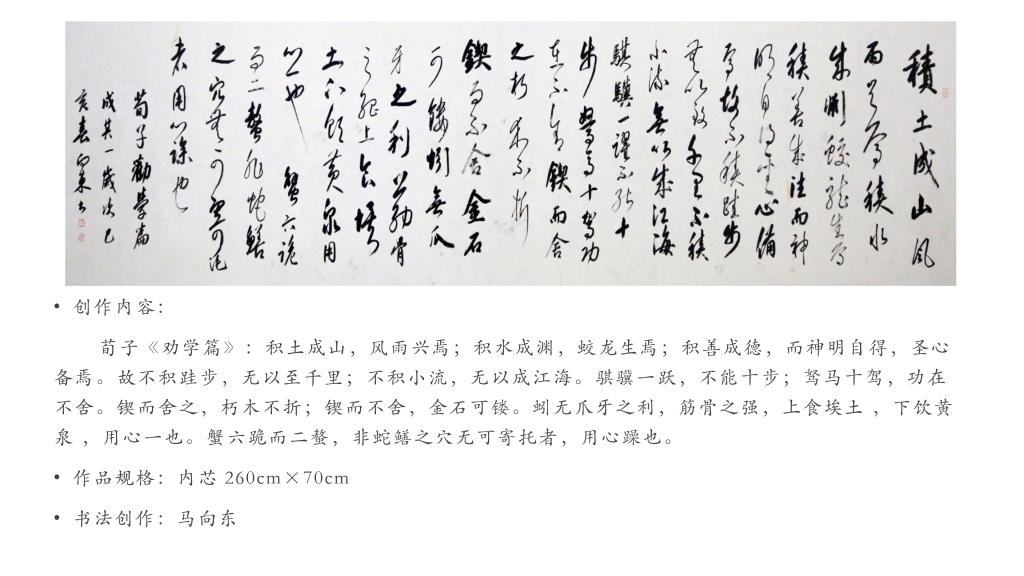 積土成山風
雨興焉積水
成淵蛟龍生焉
積善成德而神
明自得聖心備
焉故不積跬步
無以致千里不積
小流無以成江海
騏驥一躍不能十
步駑馬十駕功
在不舍鍥而舍
之朽木不折
鍥而不舍金石
可鏤蚓無爪
牙之利筋骨
之強上食埃
土下飲黃泉用
心一也蟹六跪
而二螯非蛇鱔
之穴無可寄託
者用心躁也
荀子勸學篇
成其一歲次己
亥春向東書
• 创作内容：
荀子《劝学篇》：积土成山，风雨兴焉；积水成渊，蛟龙生焉；积善成德，而神明自得，圣心
备焉。故不积跬步，无以至千里；不积小流，无以成江海。骐骥一跃，不能十步；驽马十驾，功在
不舍。锲而舍之，朽木不折；锲而不舍，金石可镂。蚓无爪牙之利，筋骨之强，上食埃土 ，下饮黄
泉 ，用心一也。蟹六跪而二螯，非蛇鳝之穴无可寄托者，用心躁也。
• 作品规格：内芯 260cm×70cm
• 书法创作：马向东